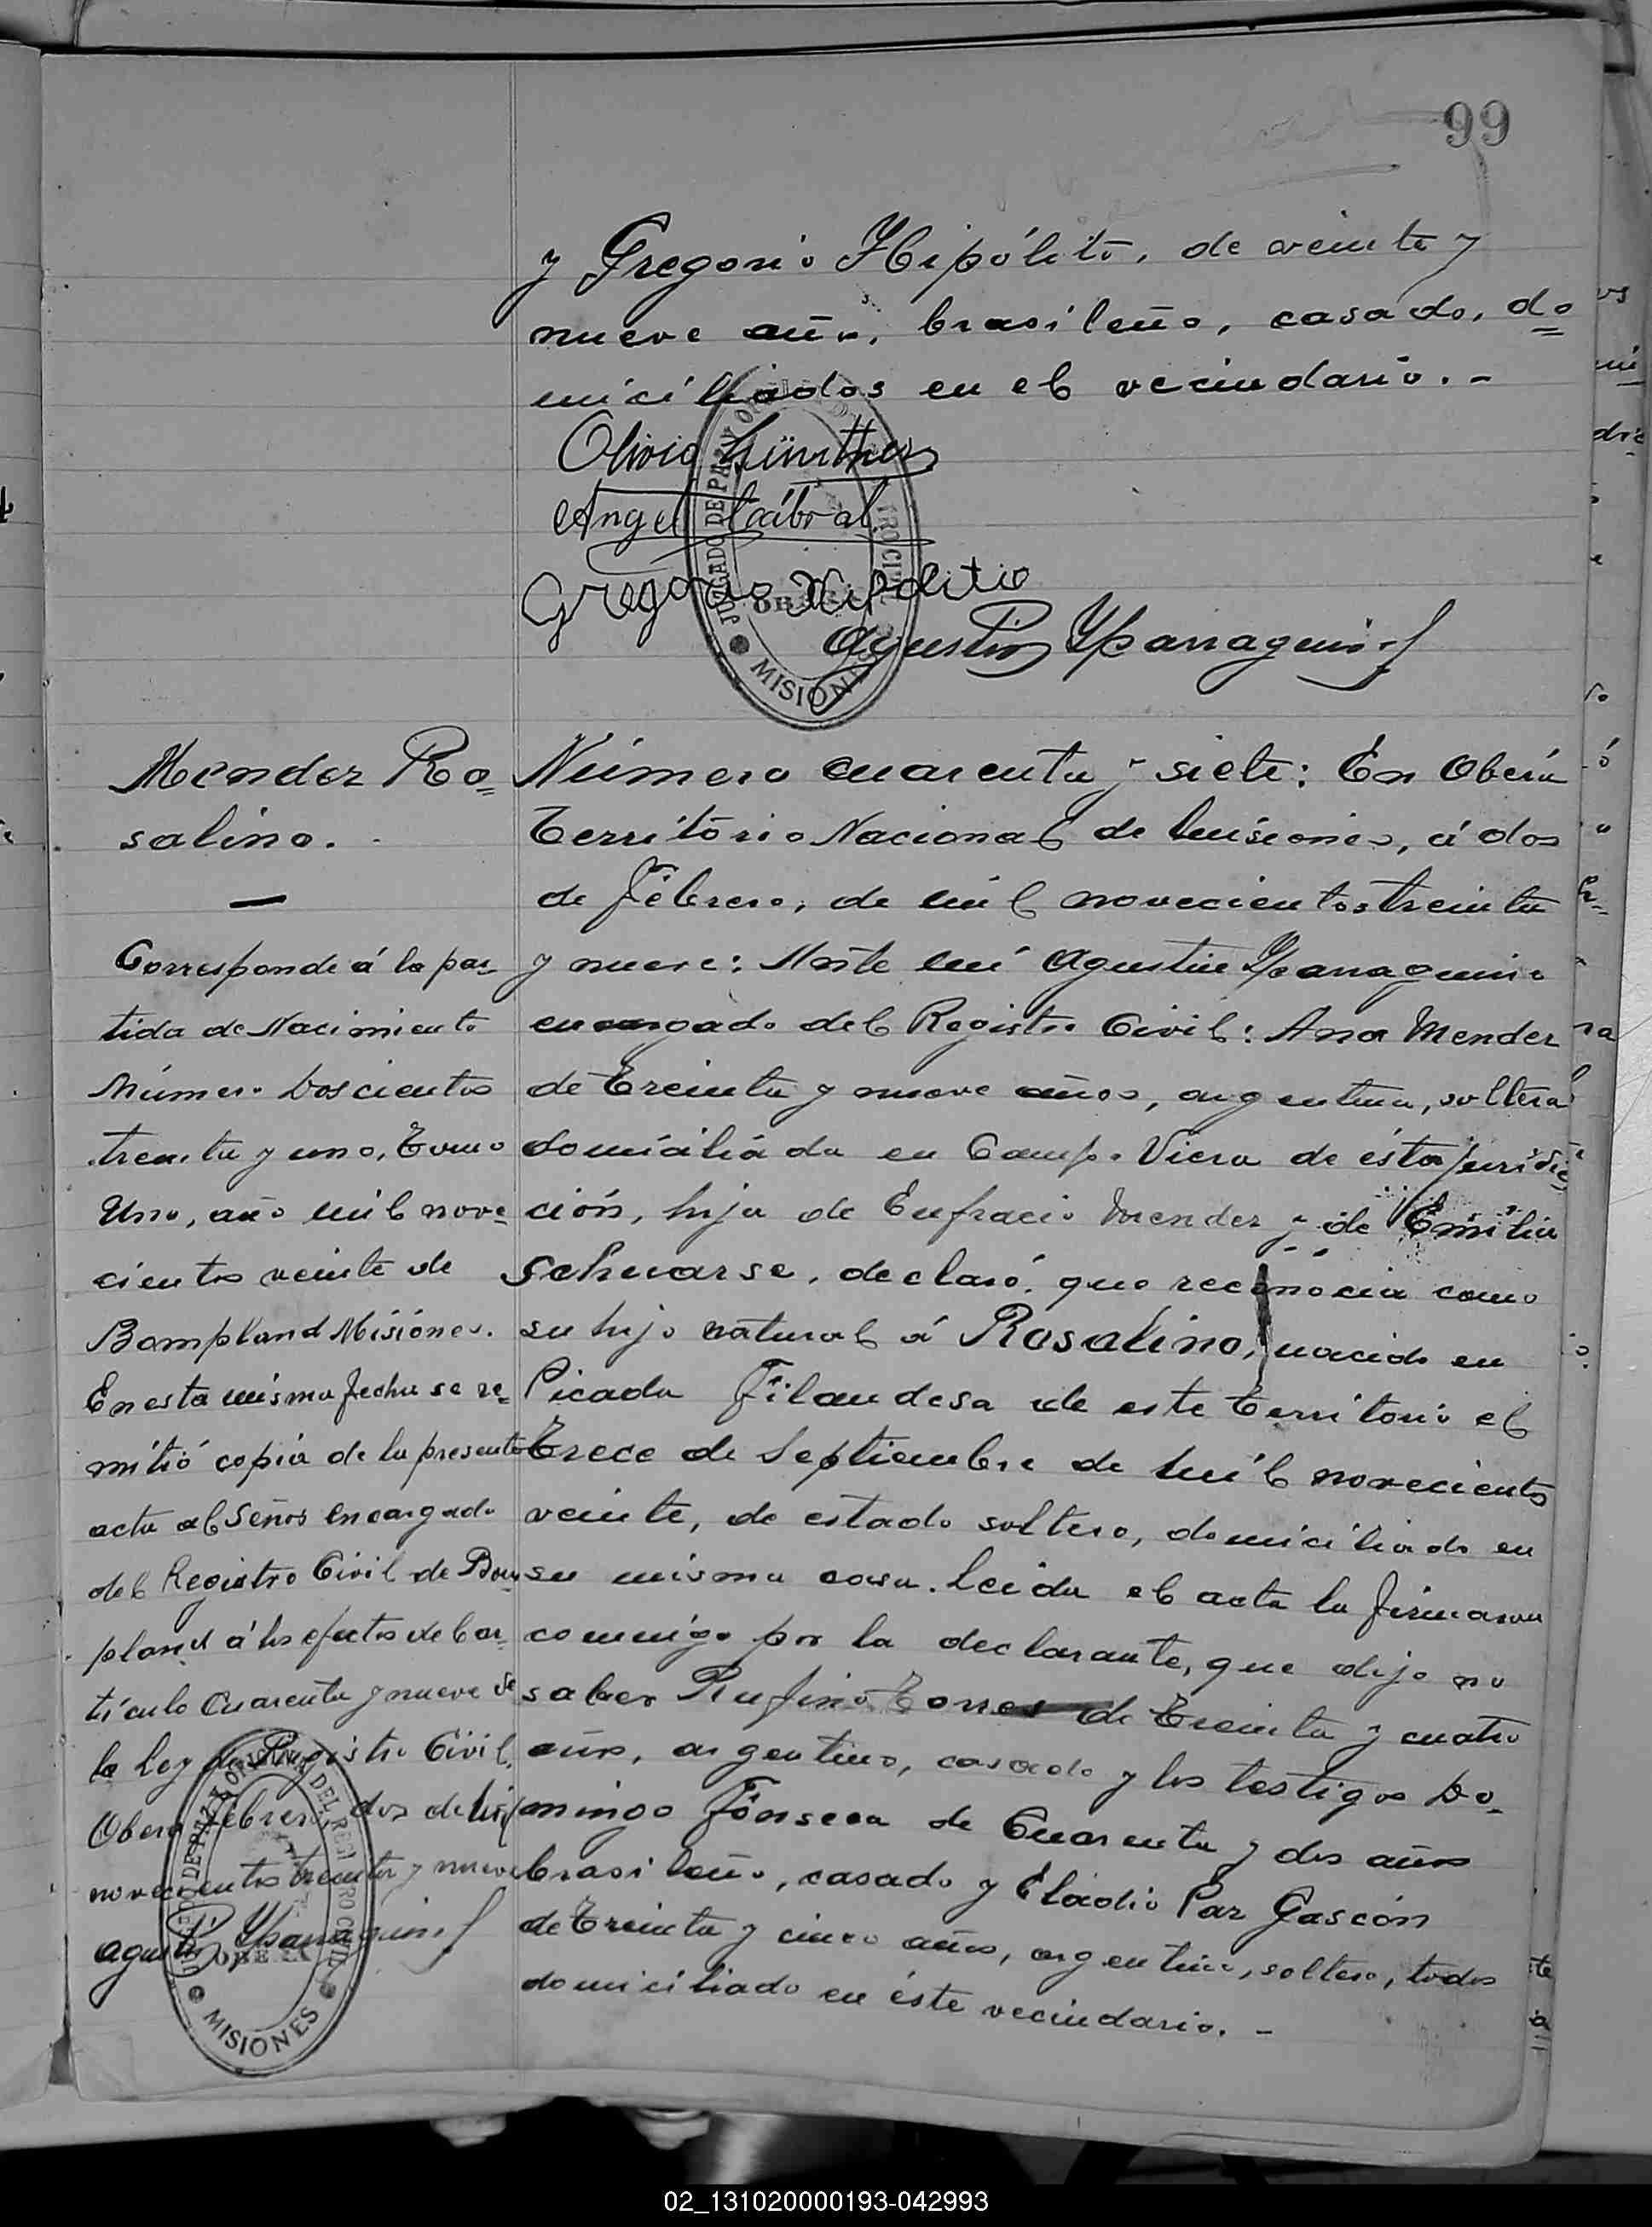 99
y Gregorio Hipólito, de veinte y
nueve años, brasileño, casado, do=
miciliados en el vecindario.-
Olivio Günther
Angel Cabral
Gregorio Hipolitio
Agustin Yparraguirre
JUZGADO DE PAZ Y OFICINA DEL REGISTRO CIVIL
OBERA
MISIONES
Mendez Ro=
salino.
—
Corresponde á la par-
tida de Nacimiento
Número Doscientos
treinta y uno, Tomo
Uno, año mil nove=
cientos veinte de
Bompland Misiones.
En esta misma fecha se re=
mitió copia de la presente
acta al Señor encargado
del Registro Civil de Bom
pland á los efectos del ar-
tículo Cuarenta y nueve de
la Ley de Registro Civil.
Obera Febrero, dos de mil
novecientos treinta y nueve
Agustin Yparraguirre
JUZGADO DE PAZ Y OFICINA DEL REGISTRO CIVIL
OBERA
MISIONES
Número cuarenta y siete: En Oberá
Territorio Nacional de Misiones, á dos
de Febrero, de mil novecientos treinta
y nueve: Ante mí Agustin Yparraguirre
encargado del Registro Civil: Ana Mendez
de Treinta y nueve años, argentina, soltera
domiciliada en Campo Viera de ésta juridic=
ción, hija de Eufracio Mendez y de Emilia
Schwarse, declaró, que reconocia como
su hijo natural á Rosalino, nacido en
Picada Filandesa de este Territorio el
Trece de Septiembre de mil novecientos
veinte, de estado soltero, domiciliado en
su misma casa. Leida el acta la firmaron
conmigo por la declarante, que dijo no
saber Rufino Torres de Treinta y cuatro
años, argentino, casado y los testigos Do-
mingo Fonseca de Cuarenta y dos años
brasileño, casado y Eladio Paz Gascón
de Treinta y cinco años, argentino, soltero, todos
domiciliado en éste vecindario. -
02_131020000193-042993